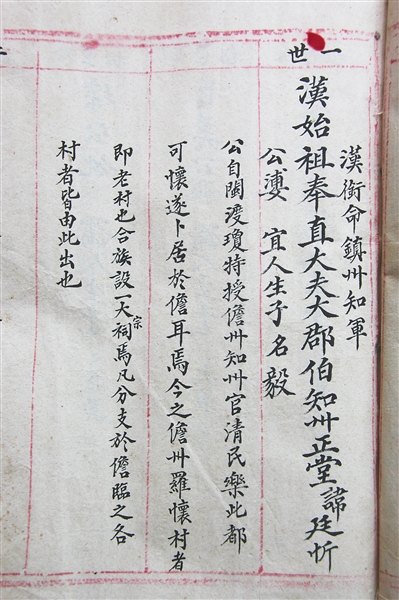 一世
漢銜命鎮州知軍
漢始祖奉直大夫大郡伯知州正堂諱廷忻
公婁宜人生子名毅
公自閩渡瓊特授儋州知州官清民樂此都
可懷遂卜居於儋耳焉今之儋州羅懷村者
即老村也合族設一大宗祠焉凡分支於儋臨之各
村者皆由此出也
二